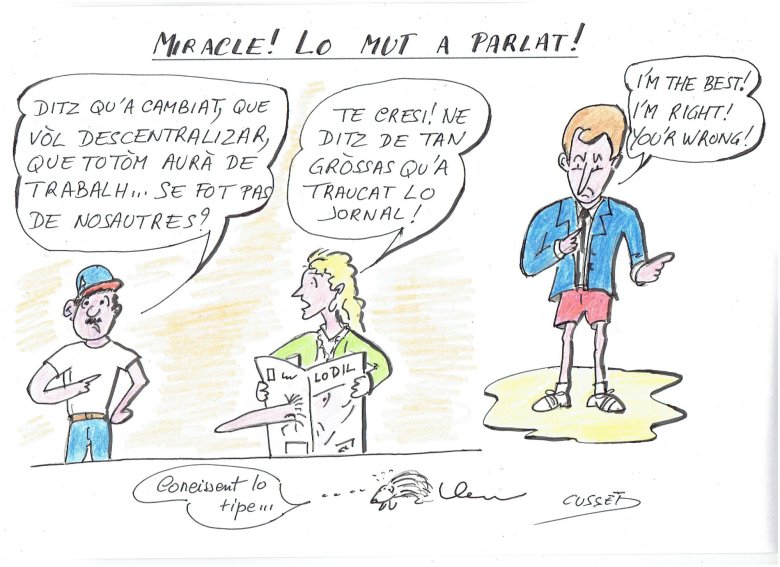 MIRACLE! LO MUT A PARLAT!
DITZ QU'A CAMBIAT, QUE
VÒL DESCENTRALIZAR,
QUE TOTÒM AURÀ DE
TRABALH... SE FOT PAS
DE NOSAUTRES?
TE CRESI! NE
DITZ DE TAN
GRÒSSAS QU'A
TRAUCAT LO
JORNAL!
I'M THE BEST!
I'M RIGHT!
YOU'R WRONG!
LO DIL
Coneissent lo
tipe...
CUSSET